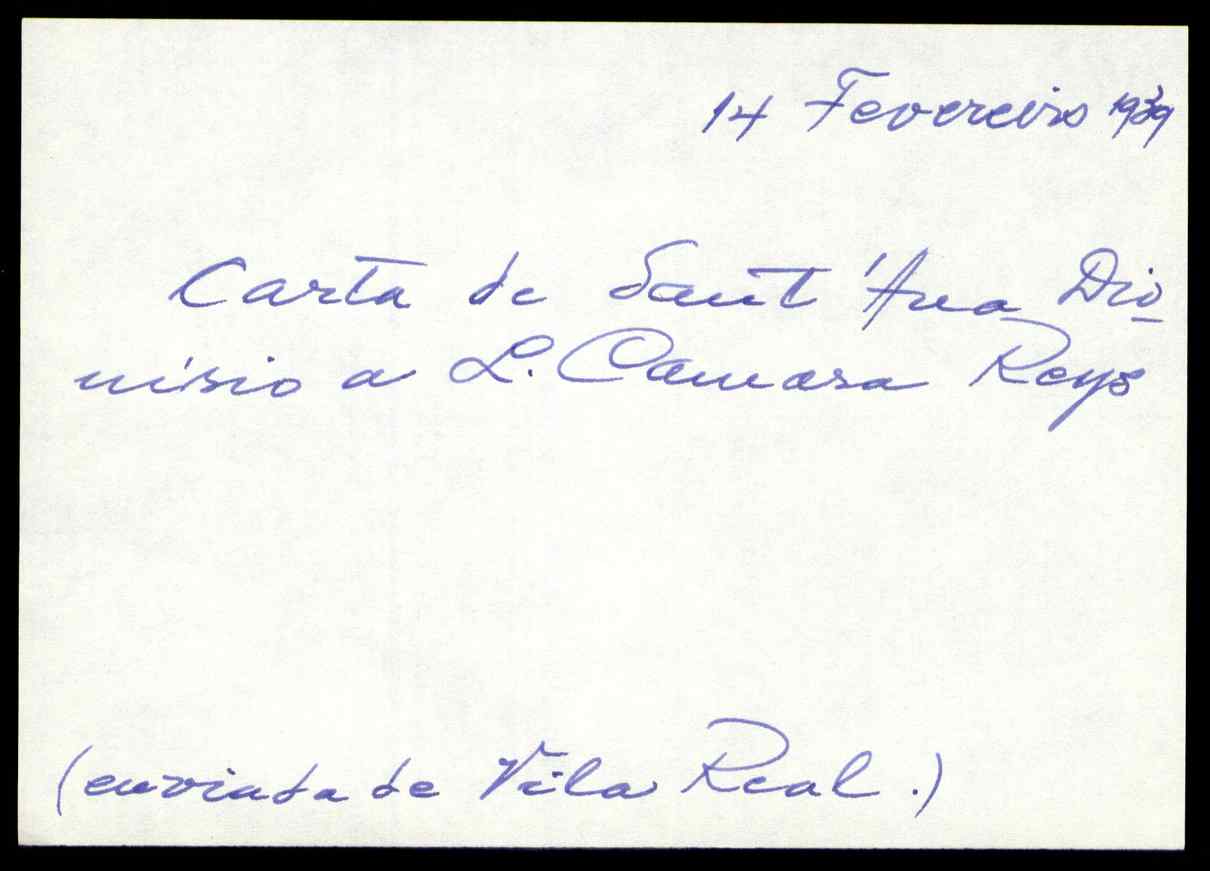 14 Fevereiro 1939
Carta de Sant'Ana Dio-
nísio a L. Camara Reys
(enviada de Vila Real.)